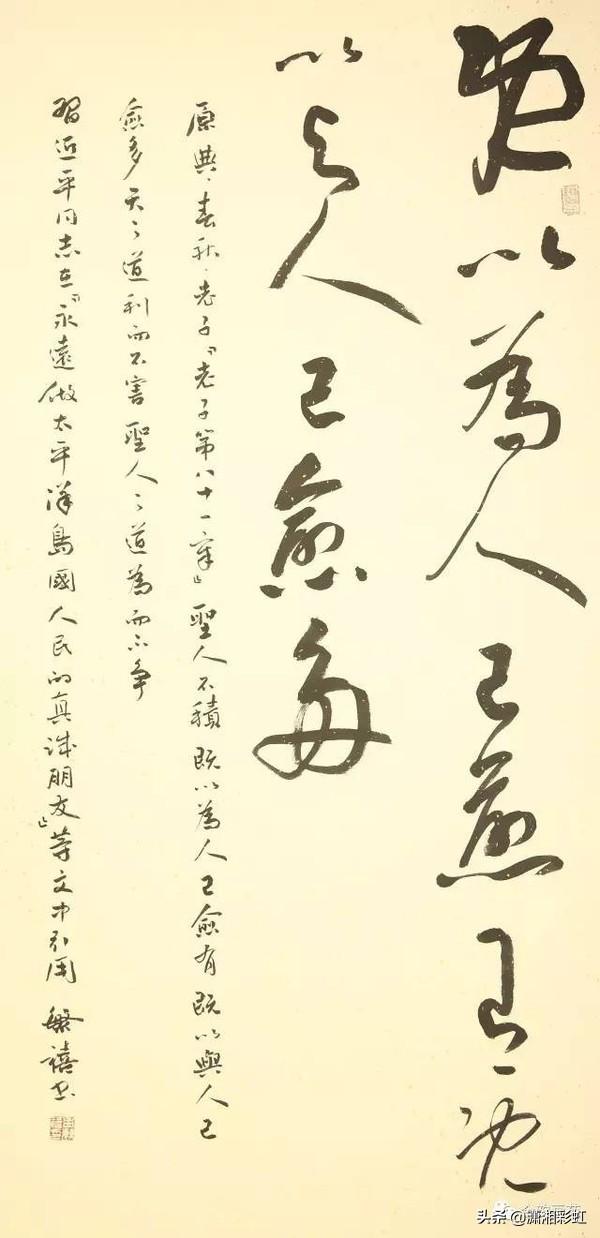 既以為人己愈有既
以與人己愈多
原典·春秋·老子『老子第八十一章』聖人不積既以為人己愈有既以與人己
愈多天之道利而不害聖人之道為而不爭
習近平同志在『永遠做太平洋島國人民的真誠朋友』等文中引用 繁禧书
头条 @潇湘彩虹